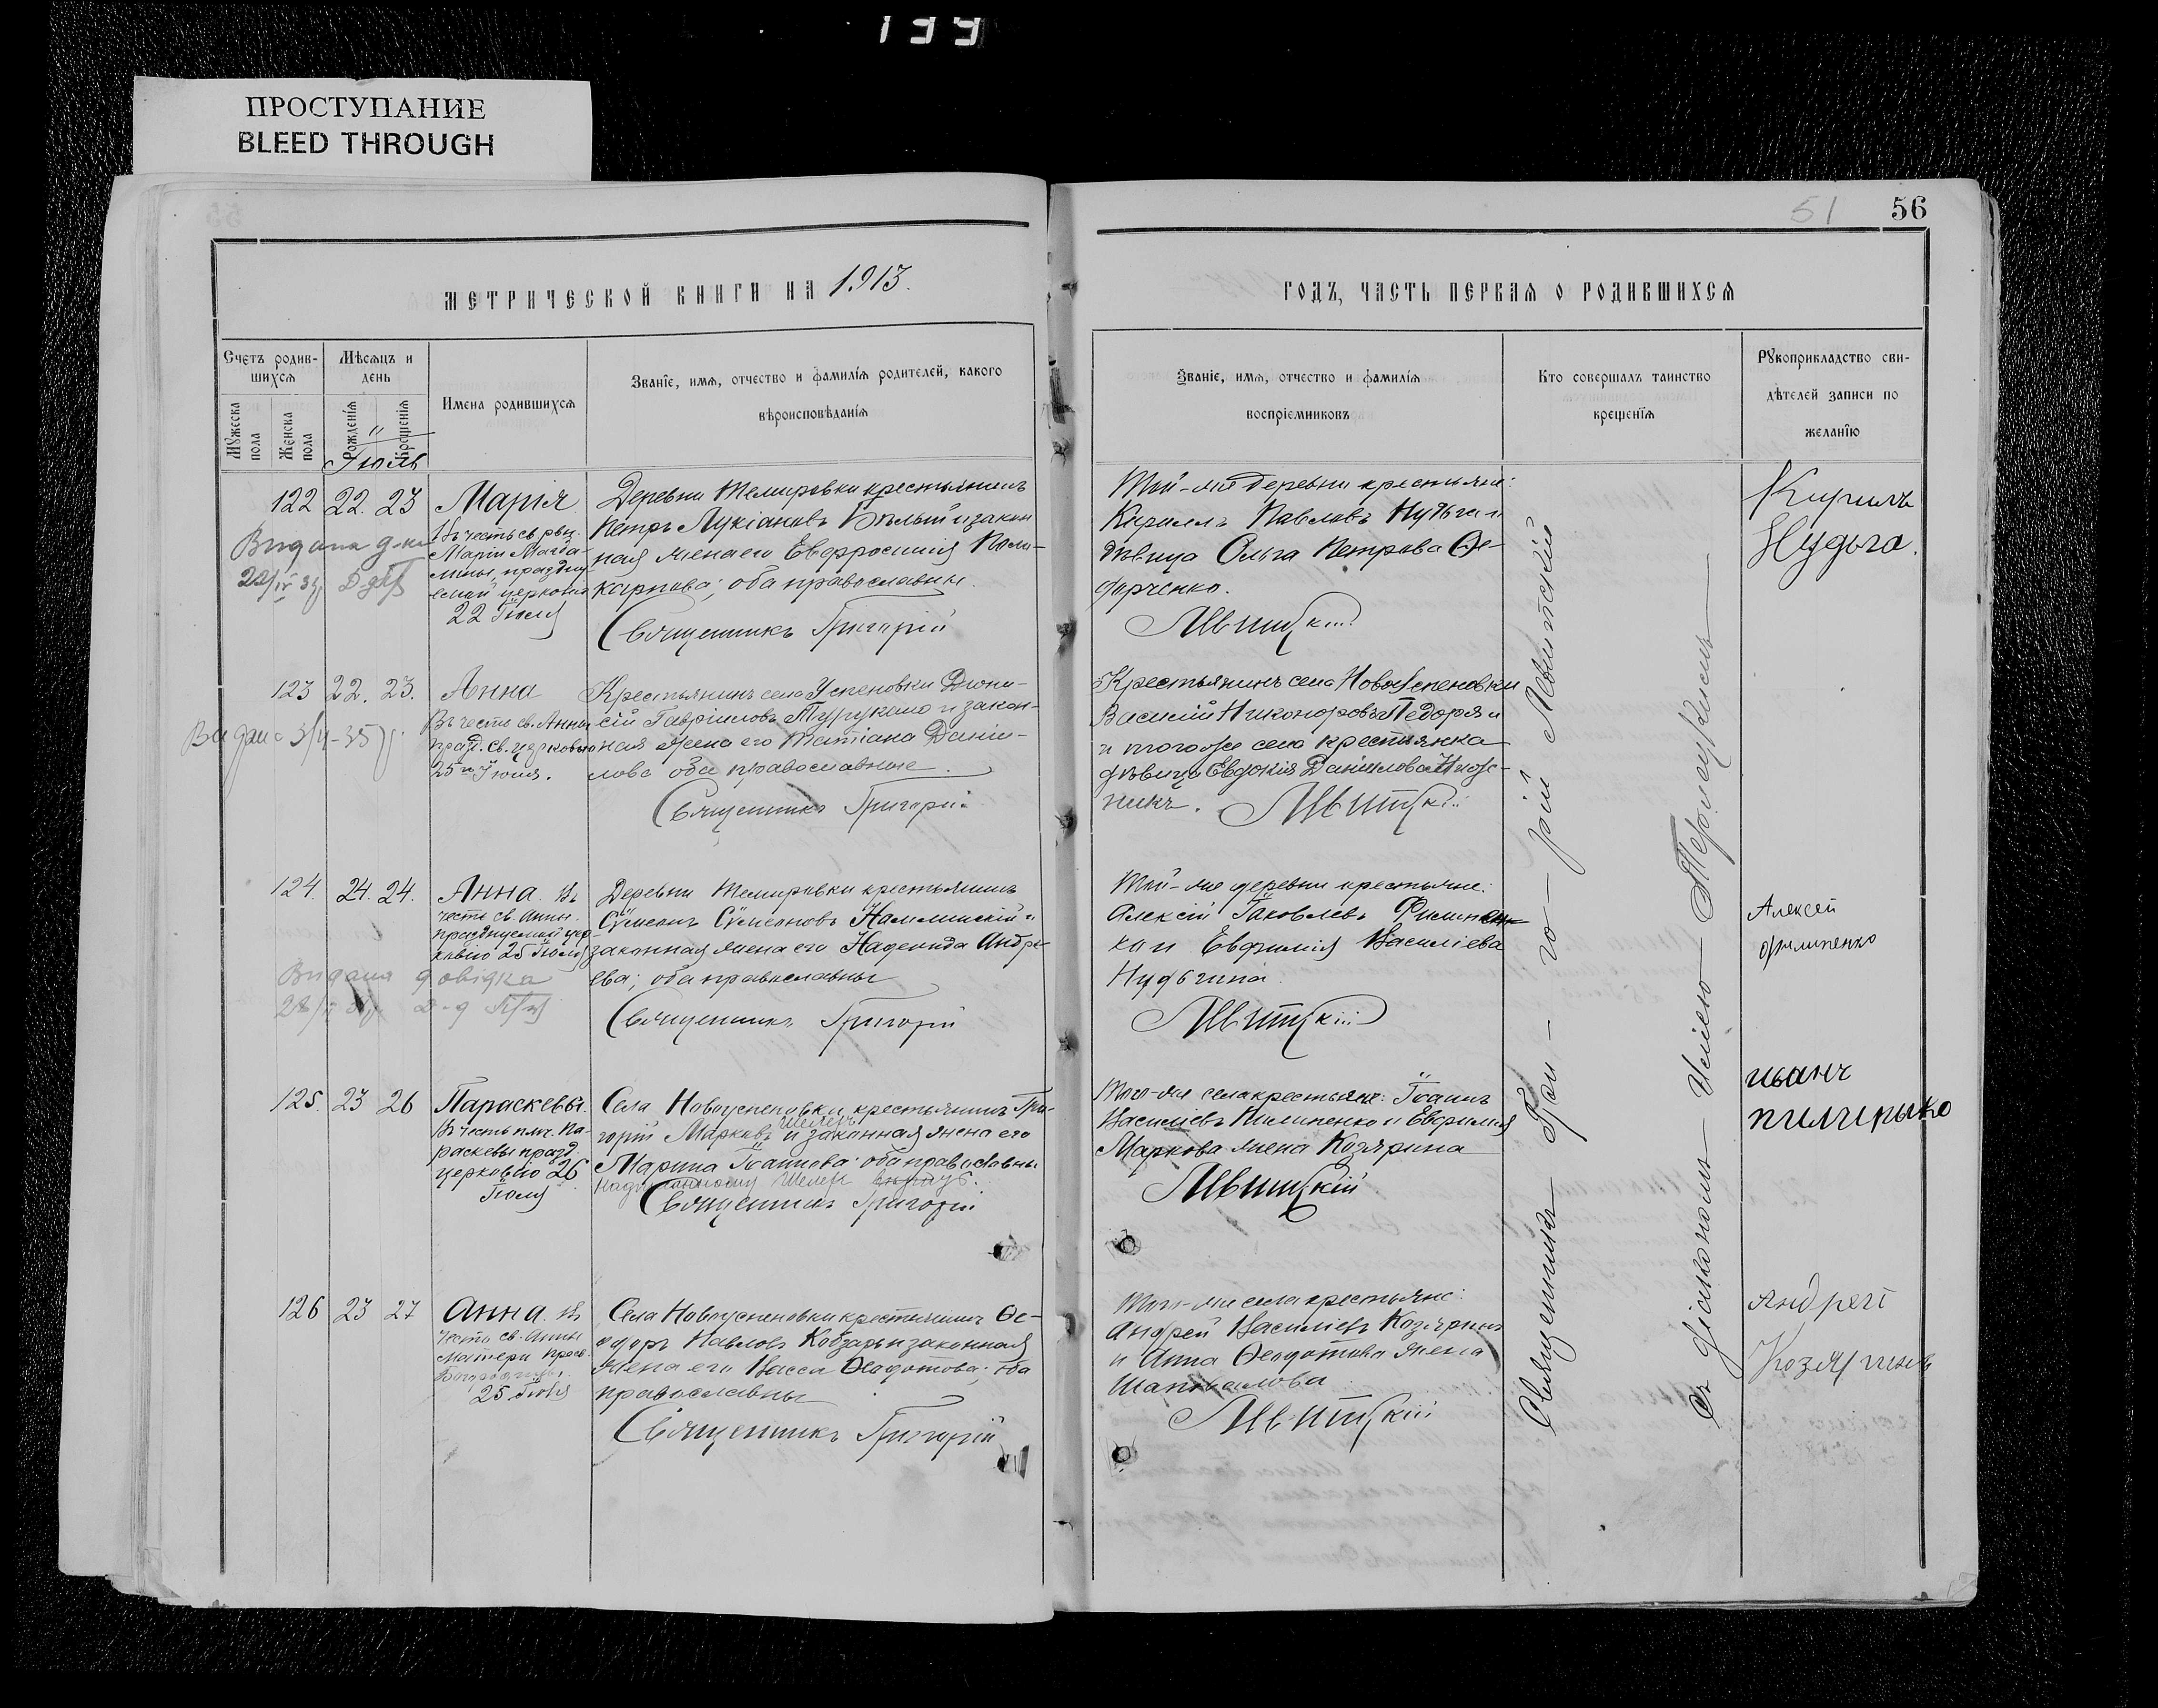 139
ПРОСТУПАНИЕ
BLEED THROUGH
51 56
МЕТРИЧЕСКОЙ КНИГИ НА 1913.
ГОДЪ, ЧАСТЬ ПЕРВАЯ О РОДИВШИХСЯ
Счетъ родив-
шихся
Мужеска пола
Женска пола
Мѣсяцъ и
день
Рожденія
Крещенія
Іюль
Имена родившихся
Званіе, имя, отчество и фамилія родителей, какого
вѣроисповѣданія
Званіе, имя, отчество и фамилія
воспріемниковъ
Кто совершалъ таинство
крещенія
Рукоприкладство сви-
дѣтелей записи по
желанію
122 22. 23
Марія
Въ честь св. рвн.
Маріи Магда-
лины, праздну-
емой церковью
22 Іюля
Видана
Деревни Темировки крестьянинъ
Петръ Лукіановъ Бѣлый и закон
ная жена его Евфросинія Поли-
карпова; оба православны.
Священникъ Григорій
Той-же деревни крестьяне:
Кириллъ Павловъ Нудьга и
дѣвица Ольга Петрова Ѳе-
дорченко.
Левитскій
Кирилъ
Нудьга.
123 22. 23.
Анна
Въ честь св. Анны
празд. св. церковью
25го Іюля.
Видана
Крестьянинъ села Успеновки Діони-
сій Гавріиловъ Турукало и закон-
ная жена его Татіана Даніи-
лова оба православные.
Священникъ Григорій
Крестьянинъ села Новоуспеновки
Василій Никоноровъ Педоря и
и того же села крестьянка
дѣвица Евдокія Даніилова
никъ. Левитскій
124. 24. 24.
Анна. Въ
честь св. Анны.
празднуемой цер-
ковію 25 Іюля
Видана довідка
Деревни Темировки крестьянинъ
Сѵмеонъ Сѵмеоновъ и
законная жена его Надежда Андре-
ева; оба православны
Священникъ Григорій
Той-же деревни крестьяне:
Алексій Іаковлевъ Филипен
ко и Евфимія Василіева
Нудьгина.
Левитскій
Алексей
Филипенко
125. 23 26
Параскева.
Въ честь прмч. Па-
раскевы празд.
церковію 26
Іюля
Села Новоуспеновки крестьянинъ Гри-
горій Марковъ Шелегъ и законная жена его
Марина Іоаннова; оба православны
Священникъ Григорій
Того-же села крестьяне: Іоаннъ
Василіевъ Пилипенко и Евфимія
Маркова жена Козярина
Левитскій
иванъ
126 23 27
Анна. Въ
честь св. Анны
Матери Пресв.
Богородицы,
25 Іюля
Села Новоуспеновки крестьянинъ Ѳе-
одоръ Павловъ Кобзарь и законная
жена его Васса Ѳеодотова; оба
православны
Священникъ Григорій
Того-же села крестьяне:
Андрей Василіевъ Козяринъ
и Анна Ѳеодотова жена
Шаповалова
Левитскій
Андрей
Козяринъ
Священникъ Гри-го-рій Левитскій
съ діакономъ